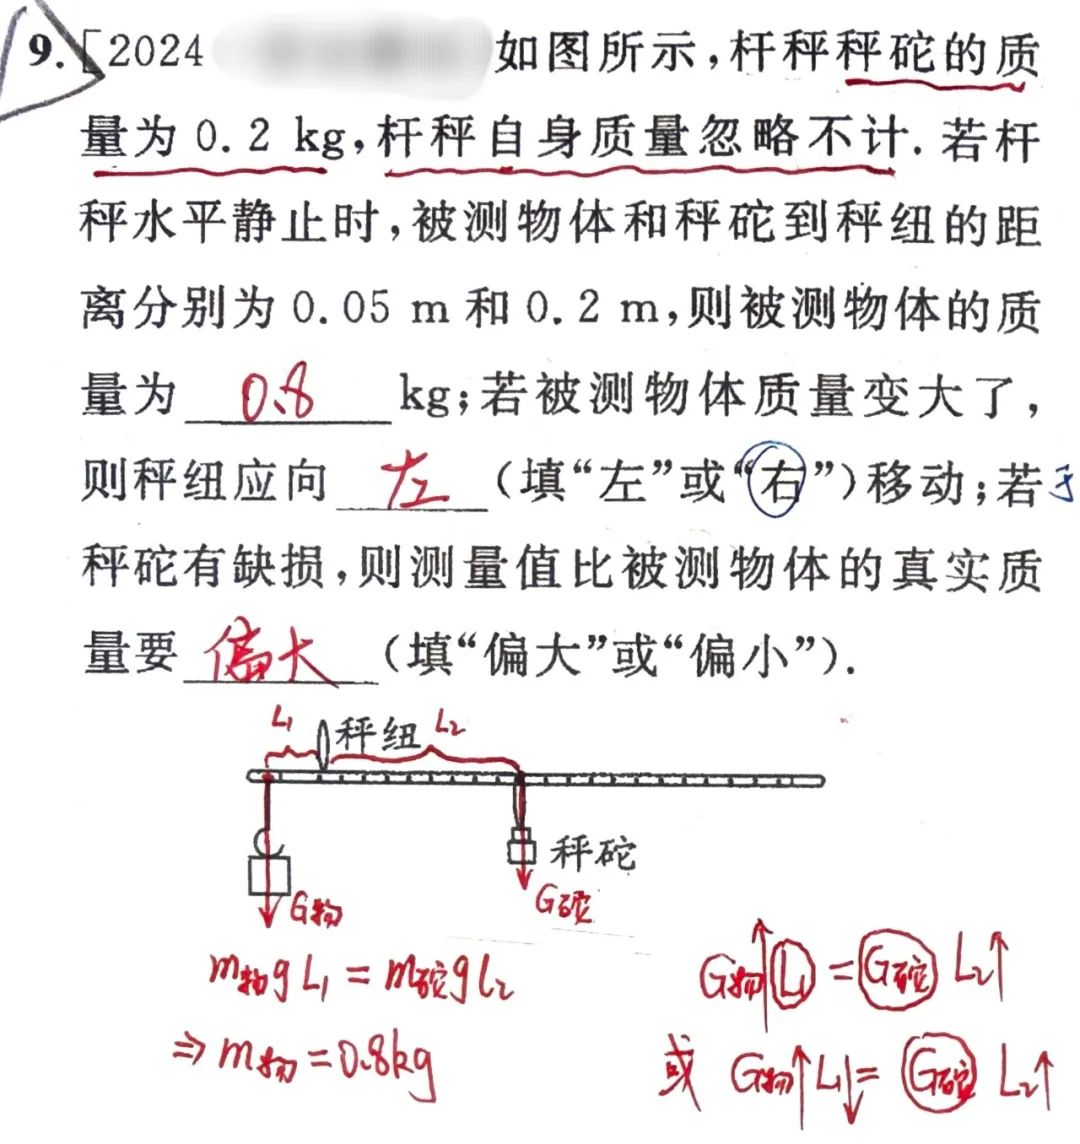 9. [2024 如图所示,杆秤秤砣的质
量为0.2 kg,杆秤自身质量忽略不计.若杆
秤水平静止时,被测物体和秤砣到秤纽的距
离分别为0.05 m和0.2 m,则被测物体的质
量为 0.8 kg;若被测物体质量变大了,
则秤纽应向 左 (填“左”或“右”)移动;若
秤砣有缺损,则测量值比被测物体的真实质
量要 偏大 (填“偏大”或“偏小”).
L₁ 秤纽 L₂
秤砣
G物 G砣
m物gL₁ = m砣gL₂
⇒ m物 = 0.8kg
G物↑L₁ = G砣 L₂↑
或 G物↑L₁↓ = G砣 L₂↑